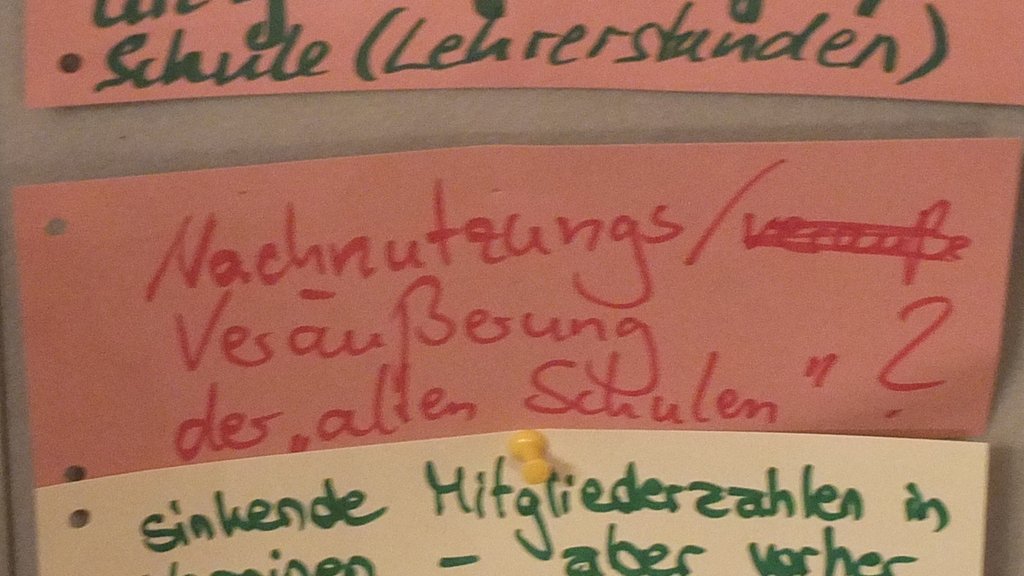 • Schule (Lehrerstunden)
Nachnutzungs/
Veräußerung
der „alten Schulen" ?
• sinkende Mitgliederzahlen in
- aber vorher